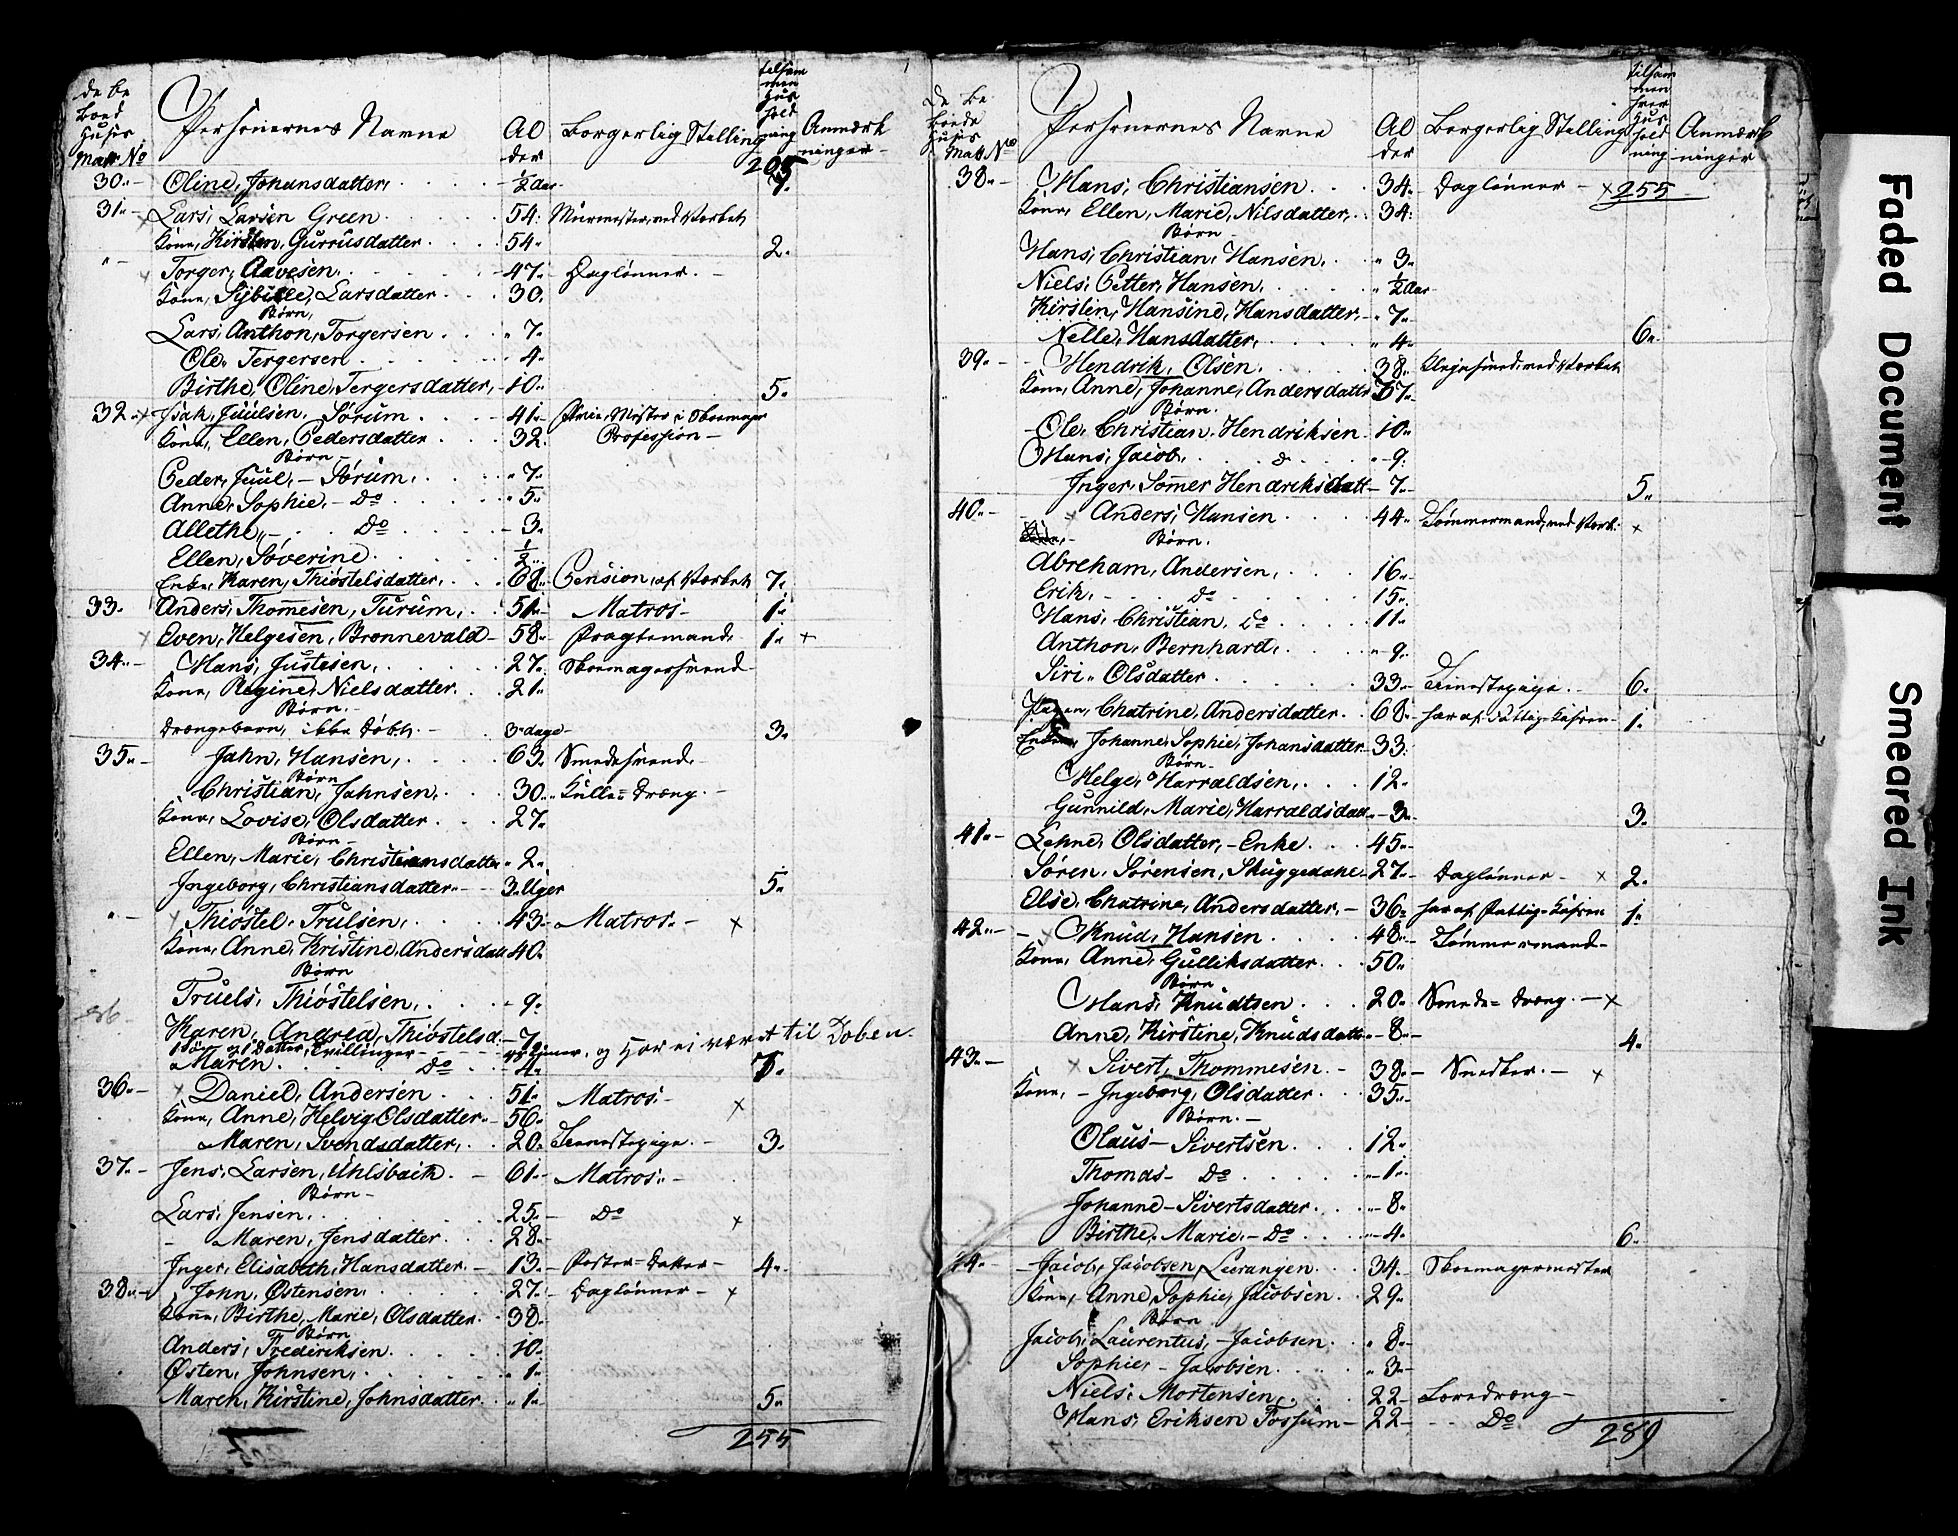 de be
boed
Huses
Matr No
Personernes Navne
Al
der
Borgerlig Stilling
tilsam
men
Hus
hold
ning
Anmærk
ninger
205
30 Oline, Johansdatter, ½ Aar
31 Lars, Larsen Green 54 Muurmester, ved Værket,
Kone, Kirsten, Gurrusdatter 54 2.
Torger, Aavesen 47 Daglønner
Kone, Sybille, Larsdatter 30
Børn,
Lars, Anthon, Torgersen 7
Ole, Torgersen 4
Birthe, Oline, Torgersdatter, 10 5.
32 Isak, Juulsen, Sørum 41 Mister i Skomager
Kone, Ellen, Pedersdatter 32 Profession
Børn
Peder, Juul, Sørum 7
Anne, Sophie, Do 5
Allethe, Do 3
Ellen, Søverine ½
Enke, Karen, Thiostelsdatter, 68 Pension, af Værket, 7.
33 Anders, Thomesen, Turum, 51 Matros 1.
Even, Helgesen, Brønnevald 58 Pragtemand 1. +
34 Hans, Justesen, 27 Skomagersvend
Kone, Regine, Nielsdatter 21
Børn
Drængebarn, ikke Døbt 3 dage 3.
35 Jahn, Hansen, 63 Smedesvend
Børn
Christian, Jahnsen 30 Kulle=Dræng
Kone, Lovise, Olsdatter 27
Børn
Ellen, Marie, Christiansdatter 2
Ingeborg, Christiansdatter 3 Uger 5.
Thiostel, Trulsen, 43 Matros x
Kone, Anne, Kristine, Andersdatt 40
Børn
Truels, Thiostelsen, 9
Karen, Andrea, Thiostelsd 7
1 Søn og 1 Datter, Tvillinger og har ei været til Daben
Maren Do 4 7.
36 Daniel, Andersen 51 Matros x
Kone, Anne, Helvig Olsdatter 56
Maren, Svendsdatter, 20 Tienestepige 3.
37 Jens, Larsen, Uhlsbach 61 Matros
Børn
Lars, Jensen, 25 Do x
Maren, Jensdatter 28
Inger, Elisabeth, Hansdatter 13 Foster=Datter 4.
38 John, Østensen 27 Daglønner x
Kone, Birthe, Marie, Olsdatter 38
Børn
Anders, Frederiksen 10
Østen, Johnsen, 1
Maren, Kirstine, Johnsdatter 1 5.
255
de be
boede
Huses
Matr No
Personernes Navne
Al
der
Borgerlig Stilling
tilsam
men
hver
Hus
hold
ning
Anmærk
ninger
38 Hans, Christiansen 34 Daglønner x 255
Kone, Ellen, Marie, Nilsdatter, 34
Børn
Hans, Christian, Hansen, 3
Niels, Petter, Hansen, ½ Aar
Kirsten, Hansine, Hansdatter 7
Nelle, Hansdatter, 4 6.
39 Hendrik, Olsen 38 Kleinsmed, ved Værket,
Kone, Anne, Johanne, Andersdatt 37
Børn
Ole, Christian, Hendriksen 10
Hans, Jacob, d 9
Inger, Somer Hendriksdatt 7 5.
40 Anders, Hansen 44 Tømmermand, ved Værk. x
Børn.
Abreham, Andersen, 16
Erik, Do 15
Hans, Christian, Do 11
Anthon, Bernhard, 9
Siri, Olsdatter 33 Tienestepige 6.
Chatrine, Andersdatter 68 har af Fattig=Kassen 1.
Johanne, Sophie, Johansdatter 33
Børn
Helge, Harraldsen, 12
Gunnild, Marie, Harraldsdatt 3 3.
41 Lehne, Olsdatter, Enke 45
Søren, Sørensen, Skuggedahl 27 Daglønner x 2.
Else, Chatrine, Andersdatter, 36 har af Fattig=Kassen 1.
42 Knud, Hansen 48 Tømmermand
Kone, Anne, Gulliksdatter 50
Børn
Hans, Knudtsen 20 Smede=Dræng x
Anne, Kirstine, Knudsdatt 8 4.
43 x Sivert, Thommesen 38 Snedker x
Kone, Ingeborg, Olsdatter 35
Børn
Olaus Sivertsen 12
Thomas Do 1
Johanne Sivertsdatter 8
Birthe, Marie, Do 4 6.
44 Jacob, Jacobsen, Leerangen 34 Skomagermester
Kone, Anne, Sophie, Jacobsen 29
Børn
Jacob, Laurentus, Jacobsen 8
Sophie, Jacobsen 3
Niels, Mortensen, 22 Læredræng
Hans, Eriksen Fossum 22 Do
289
Faded Document
Smeared Ink